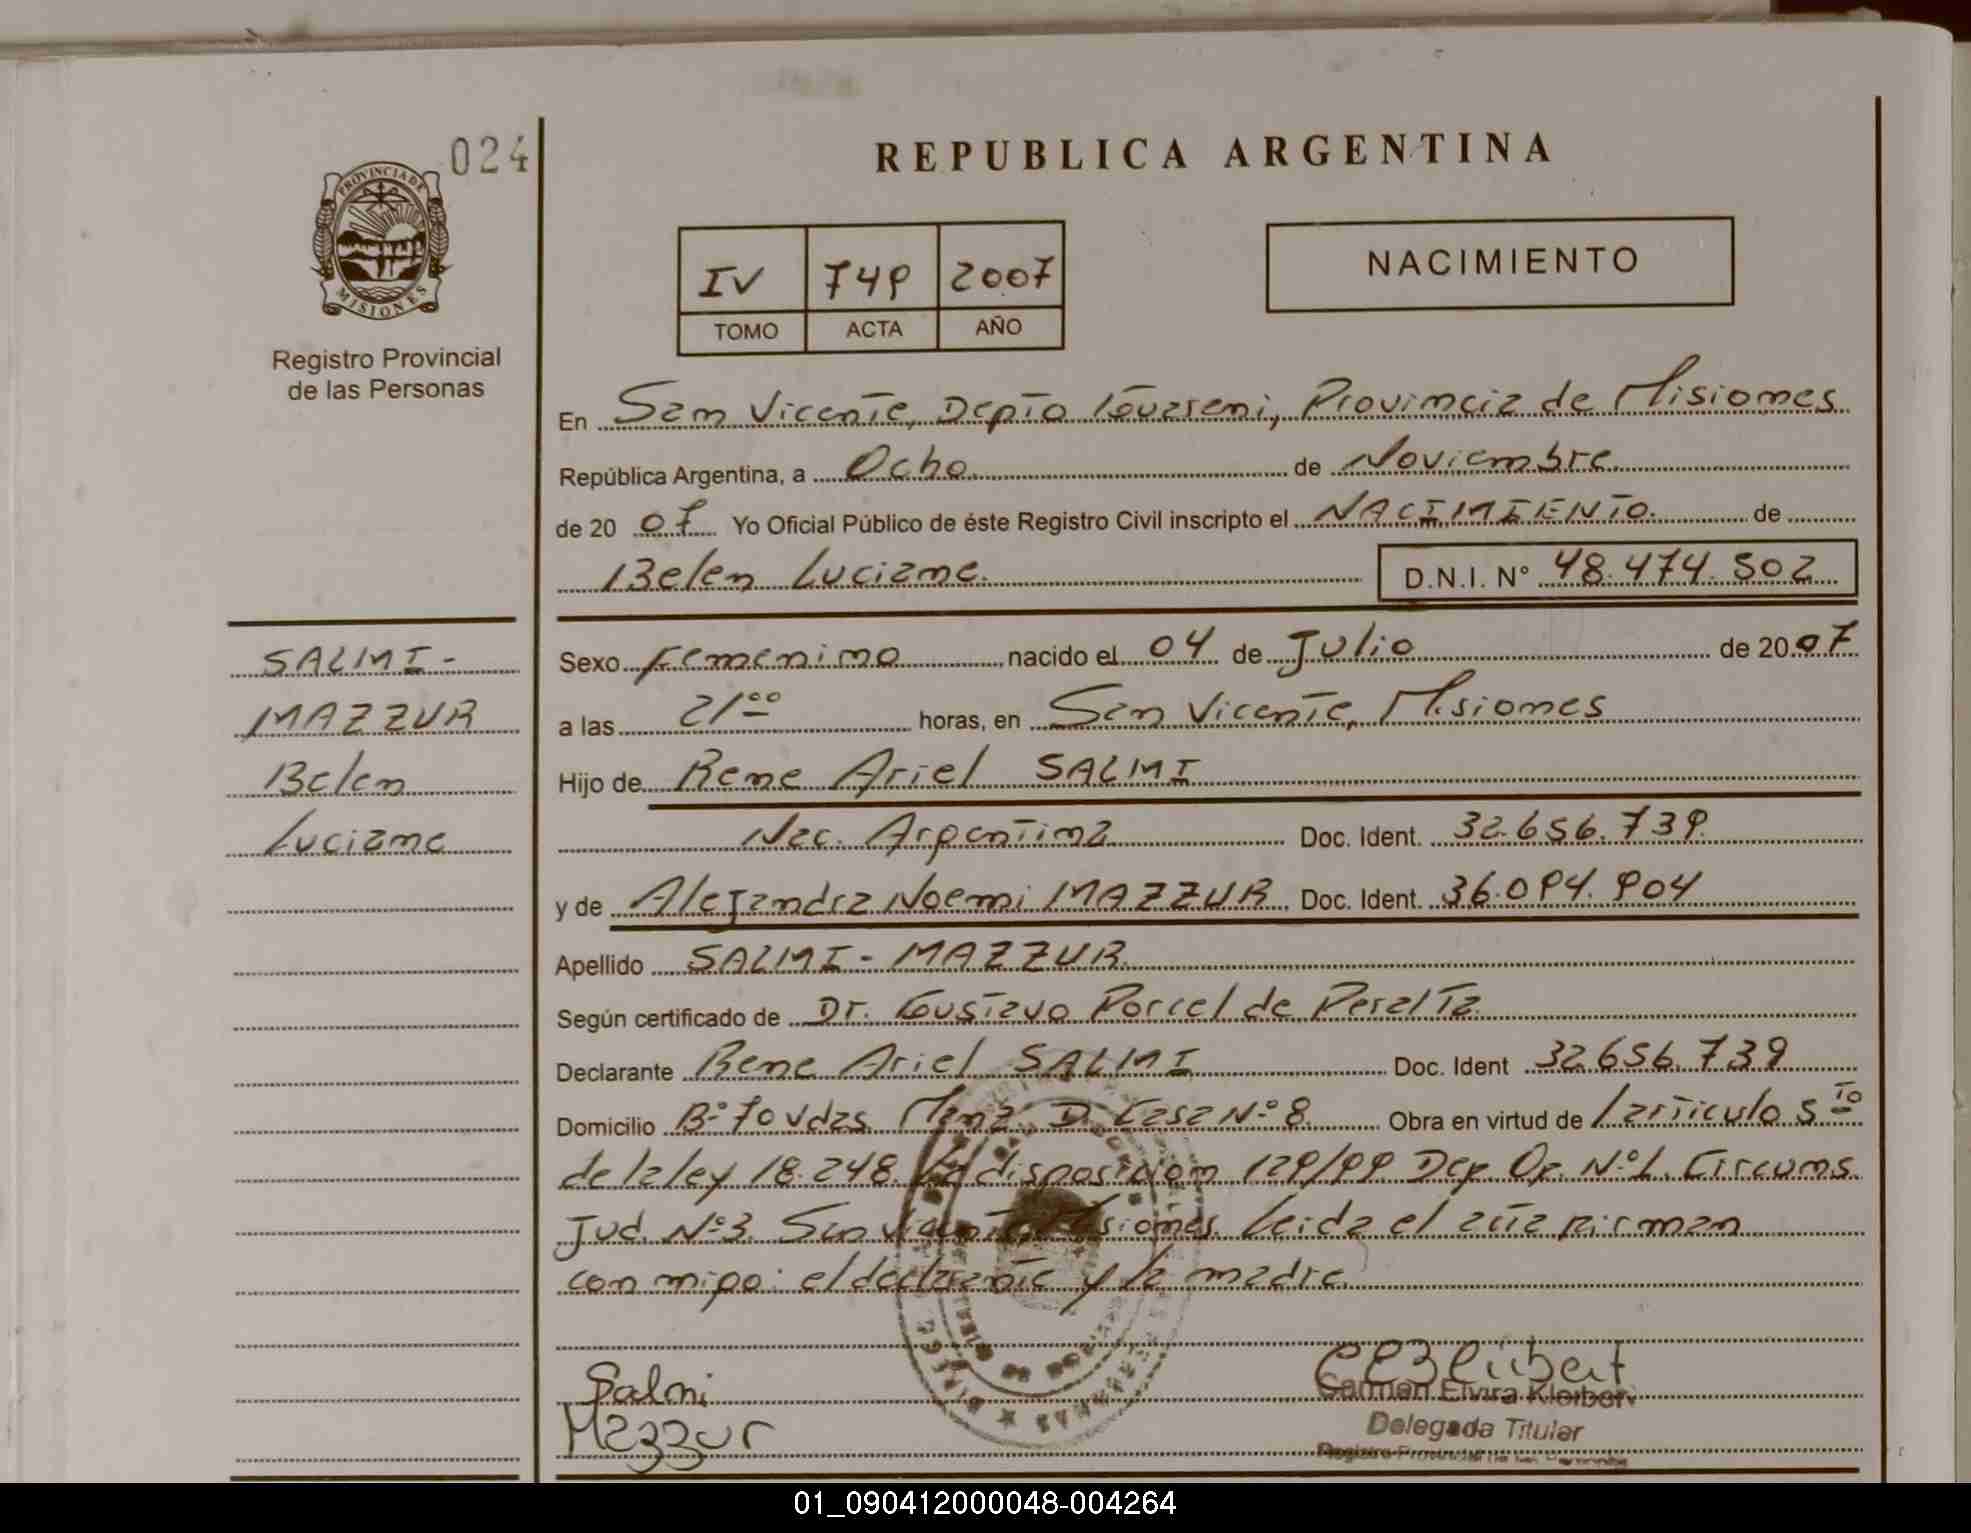 024
REPUBLICA ARGENTINA
PROVINCIA DE
MISIONES
IV 749 2007
TOMO ACTA AÑO
NACIMIENTO
Registro Provincial
de las Personas
En San Vicente, Depto Guarani, Provincia de Misiones
República Argentina, a Ocho de Noviembre
de 2007 Yo Oficial Público de éste Registro Civil inscripto el NACIMIENTO de
Belen Luciana D.N.I. N° 48.474.502
SALMI-
MAZZUR
Belen
Luciana
Sexo Femenino nacido el 04 de Julio de 2007
a las 21 00 horas, en San Vicente, Misiones
Hijo de Rene Ariel SALMI
Nac. Argentina Doc. Ident. 32.656.739
y de Alejandra Noemi MAZZUR Doc. Ident. 36.094.904
Apellido SALMI - MAZZUR
Según certificado de Dr. Gustavo Porcel de Peralta
Declarante Rene Ariel SALMI Doc. Ident 32.656.739
Domicilio B° 70 Vdas Manz. D. Casa N° 8. Obra en virtud de l articulo 5 to
de la ley 18.248. disposicion 129/99 Dep. Op. N° 1. Circuns.
Jud. N° 3. San Vicente Misiones. Leida el acta firman
conmigo: el declarante y la madre.
Salmi
Mazzur
Carmen Elvira Kleiber
Delegada Titular
Registro Provincial de las Personas
01_090412000048-004264